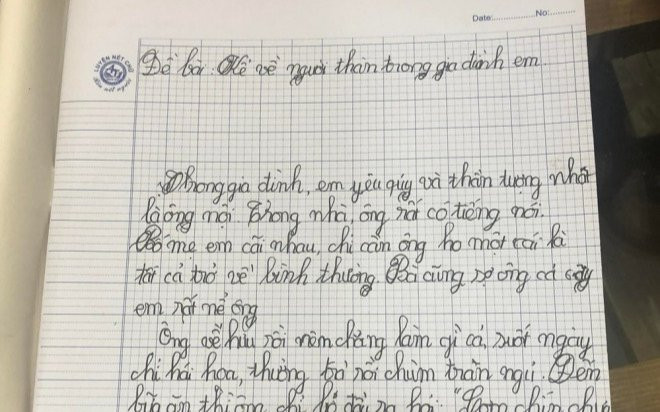 Date: No:
LUYỆN NÉT CHỮ
Đề bài: Kể về người thân trong gia đình em
Trong gia đình, em yêu quý và thần tượng nhất
là ông nội. Trong nhà, ông rất có tiếng nói.
Bố mẹ em cãi nhau, chỉ cần ông ho một cái là
tất cả trở về bình thường. Bà cũng sợ ông cả
em rất nể ông
Ông về hưu rồi nên chẳng làm gì cả, suốt ngày
chỉ hái hoa, thường trà rồi chùm trăn ngủ. Đến
bữa ăn thì ông chỉ